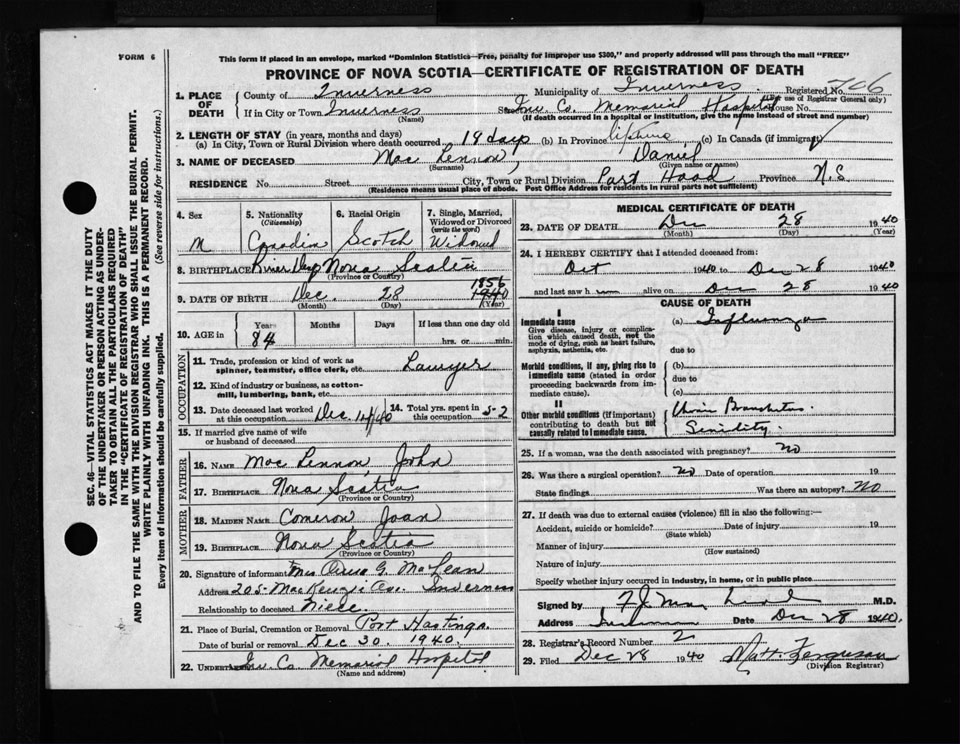 FORM 6
This form if placed in an envelope, marked "Dominion Statistics—Free, penalty for improper use $300," and properly addressed will pass through the mail "FREE"
PROVINCE OF NOVA SCOTIA—CERTIFICATE OF REGISTRATION OF DEATH
1. PLACE OF DEATH
County of Inverness Municipality of Inverness Registered No. 706
(For use of Registrar General only)
If in City or Town Inverness Street Inv. Co. Memorial Hospital House No.
(Name) (If death occurred in a hospital or institution, give the name instead of street and number)
2. LENGTH OF STAY (in years, months and days)
(a) In City, Town or Rural Division where death occurred 19 days (b) In Province lifetime (c) In Canada (if immigrant)
3. NAME OF DECEASED Mac Lennon, Daniel
(Surname) (Given name or names)
RESIDENCE No. Street City, Town or Rural Division Port Hood Province N.S.
(Residence means usual place of abode. Post Office Address for residents in rural parts not sufficient)
4. Sex M
5. Nationality (Citizenship) Canadian
6. Racial Origin Scotch
7. Single, Married, Widowed or Divorced (write the word) Widowed
8. BIRTHPLACE River Denys Nova Scotia
(Province or Country)
9. DATE OF BIRTH Dec. 28 1940 1856
(Month) (Day) (Year)
10. AGE in Years 84 Months Days If less than one day old hrs. or min.
OCCUPATION
11. Trade, profession or kind of work as spinner, teamster, office clerk, etc. Lawyer
12. Kind of industry or business, as cotton-mill, lumbering, bank, etc.
13. Date deceased last worked at this occupation Dec. 14/40
14. Total yrs. spent in this occupation 52
15. If married give name of wife or husband of deceased
FATHER
16. NAME Mac Lennon, John
17. BIRTHPLACE Nova Scotia
(Province or Country)
MOTHER
18. MAIDEN NAME Cameron, Joan
19. BIRTHPLACE Nova Scotia
(Province or Country)
20. Signature of informant Mrs G. MacLean
Address 205 MacKenzie Ave. Inverness
Relationship to deceased Niece
21. Place of Burial, Cremation or Removal Port Hastings
Date of burial or removal Dec 30. 1940.
22. UNDERTAKER Inv. Co. Memorial Hospital
(Name and address)
MEDICAL CERTIFICATE OF DEATH
23. DATE OF DEATH Dec 28 1940
(Month) (Day) (Year)
24. I HEREBY CERTIFY that I attended deceased from:
Oct 1940 to Dec 28 1940
and last saw him alive on Dec 28 1940
CAUSE OF DEATH
I
Immediate cause
Give disease, injury or complication which caused death, not the mode of dying, such as heart failure, asphyxia, asthenia, etc.
(a) Influenza
due to
Morbid conditions, if any, giving rise to immediate cause (stated in order proceeding backwards from immediate cause).
(b)
due to
(c)
II
Other morbid conditions (if important) contributing to death but not causally related to immediate cause.
Bronchitis.
Senility.
25. If a woman, was the death associated with pregnancy? no
26. Was there a surgical operation? no Date of operation 19
State findings Was there an autopsy? no
27. If death was due to external causes (violence) fill in also the following:—
Accident, suicide or homicide? Date of injury 19
(State which)
Manner of injury
(How sustained)
Nature of injury
Specify whether injury occurred in industry, in home, or in public place
Signed by M.D.
Address Date Dec 28 1940.
28. Registrar's Record Number 2
29. Filed Dec 28 1940 Matt. Ferguson
(Division Registrar)
SEC. 46—VITAL STATISTICS ACT MAKES IT THE DUTY
OF THE UNDERTAKER OR PERSON ACTING AS UNDER-
TAKER TO OBTAIN ALL THE PARTICULARS REQUIRED
IN THE "CERTIFICATE OF REGISTRATION OF DEATH"
AND TO FILE THE SAME WITH THE DIVISION REGISTRAR WHO SHALL ISSUE THE BURIAL PERMIT.
WRITE PLAINLY WITH UNFADING INK. THIS IS A PERMANENT RECORD.
Every item of information should be carefully supplied. (See reverse side for instructions.)